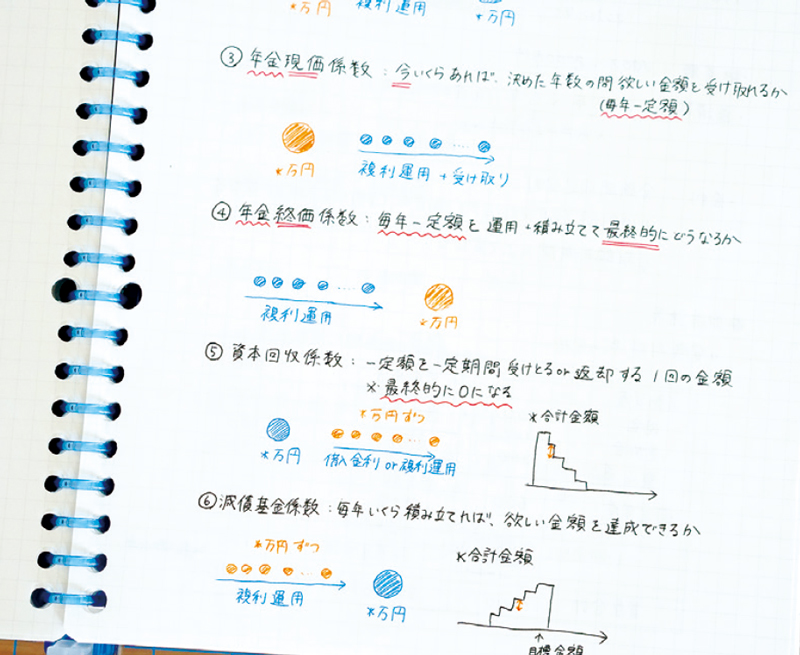 *万円 複利運用 *万円
③ 年金現価係数：今いくらあれば、決めた年数の間欲しい金額を受け取れるか
(毎年一定額)
*万円 複利運用+受け取り
④ 年金終価係数：毎年一定額を運用+積み立てて最終的にどうなるか
複利運用 *万円
⑤ 資本回収係数：一定額を一定期間受けとるor返却する1回の金額
※最終的に0になる
*万円ずつ *合計金額
*万円 借入金利or複利運用
⑥ 減債基金係数：毎年いくら積み立てれば、欲しい金額を達成できるか
*万円ずつ *合計金額
複利運用 *万円
目標金額